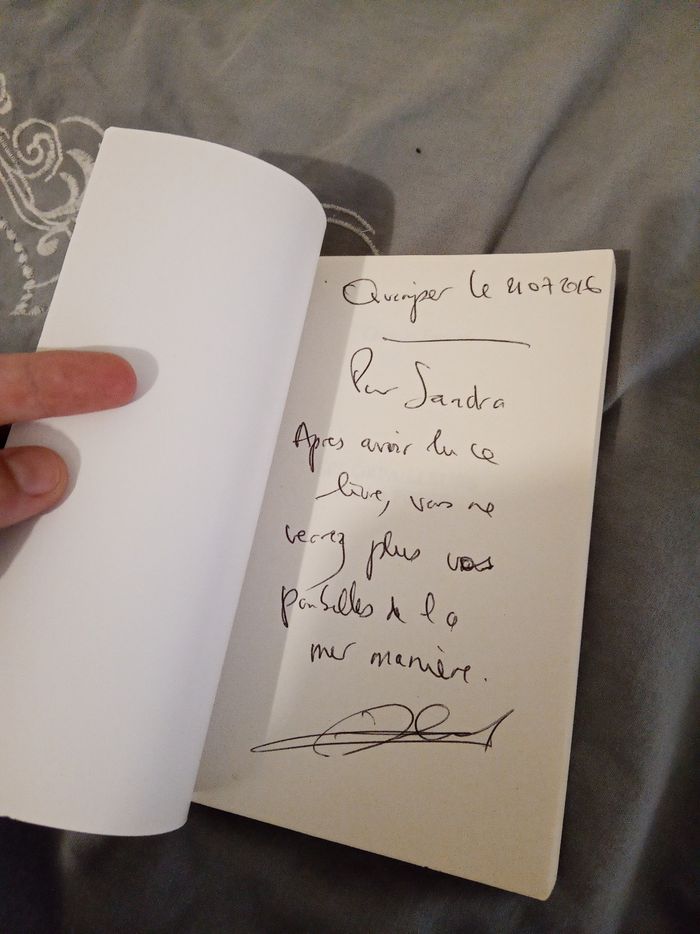 Quimper le 21 07 2016
Pour Sandra
Apres avoir lu ce
livre, vous ne
verrez plus vos
poubelles de la
manière.